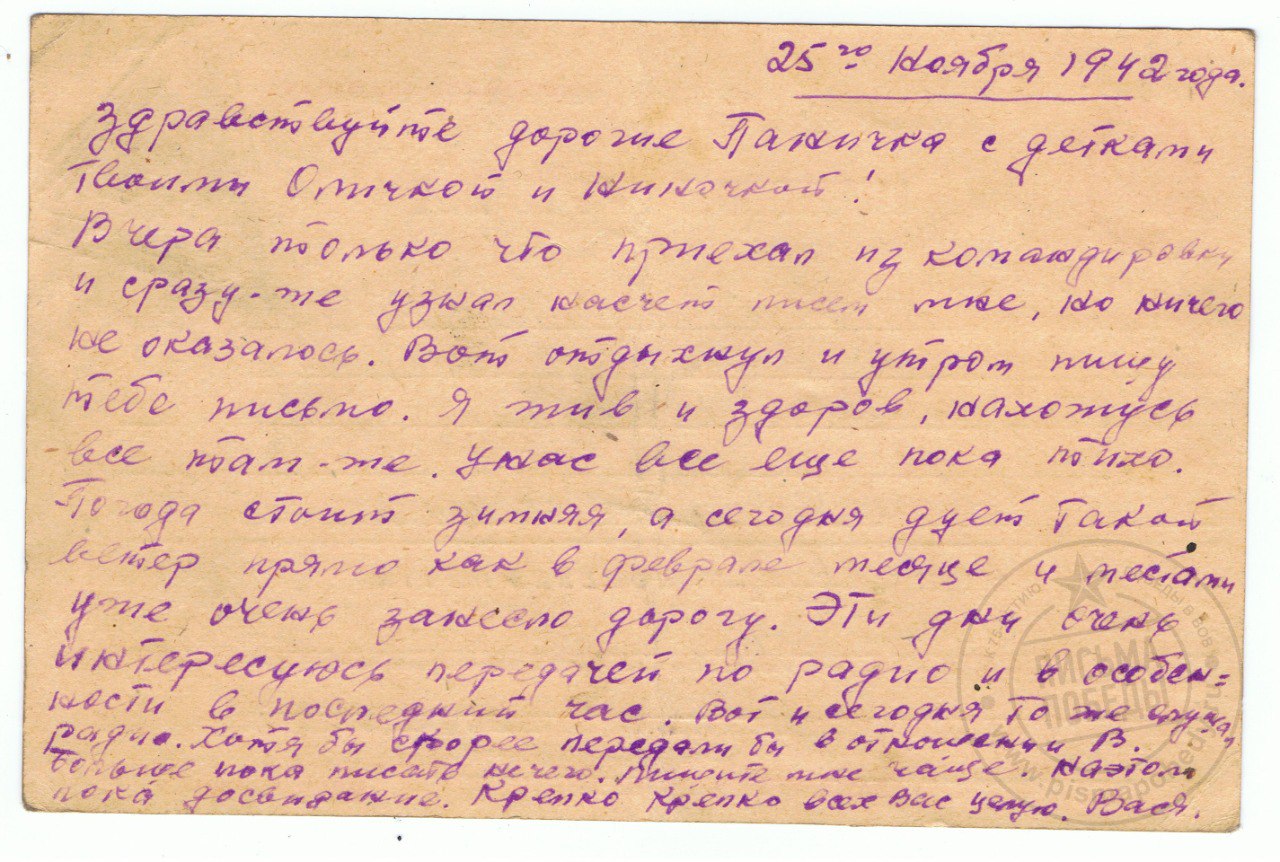 25го Ноября 1942 года.
Здравствуйте дорогие Паничка с детками
твоими Оличкой и Ниночкой!
Вчера только что приехал из командировки
и сразу-же узнал насчет писем мне, но ничего
не оказалось. Вот отдыхнул и утром пишу
тебе письмо. Я жив и здоров, нахожусь
все там-же. У нас все еще пока тихо.
Погода стоит зимняя, а сегодня дует такой
ветер прямо как в феврале месяце и местами
уже очень занесло дорогу. Эти дни очень
интересуюсь передачей по радио и в особен=
ности в последний час. Вот и сегодня то же слушал
радио. Хотя бы скорее передали бы в отношении В.
Больше пока писать нечего. Пишите мне чаще. Наэтом
пока досвидание. Крепко Крепко всех Вас целую. Вася.
ПИСЬМА
ПОБЕДЫ